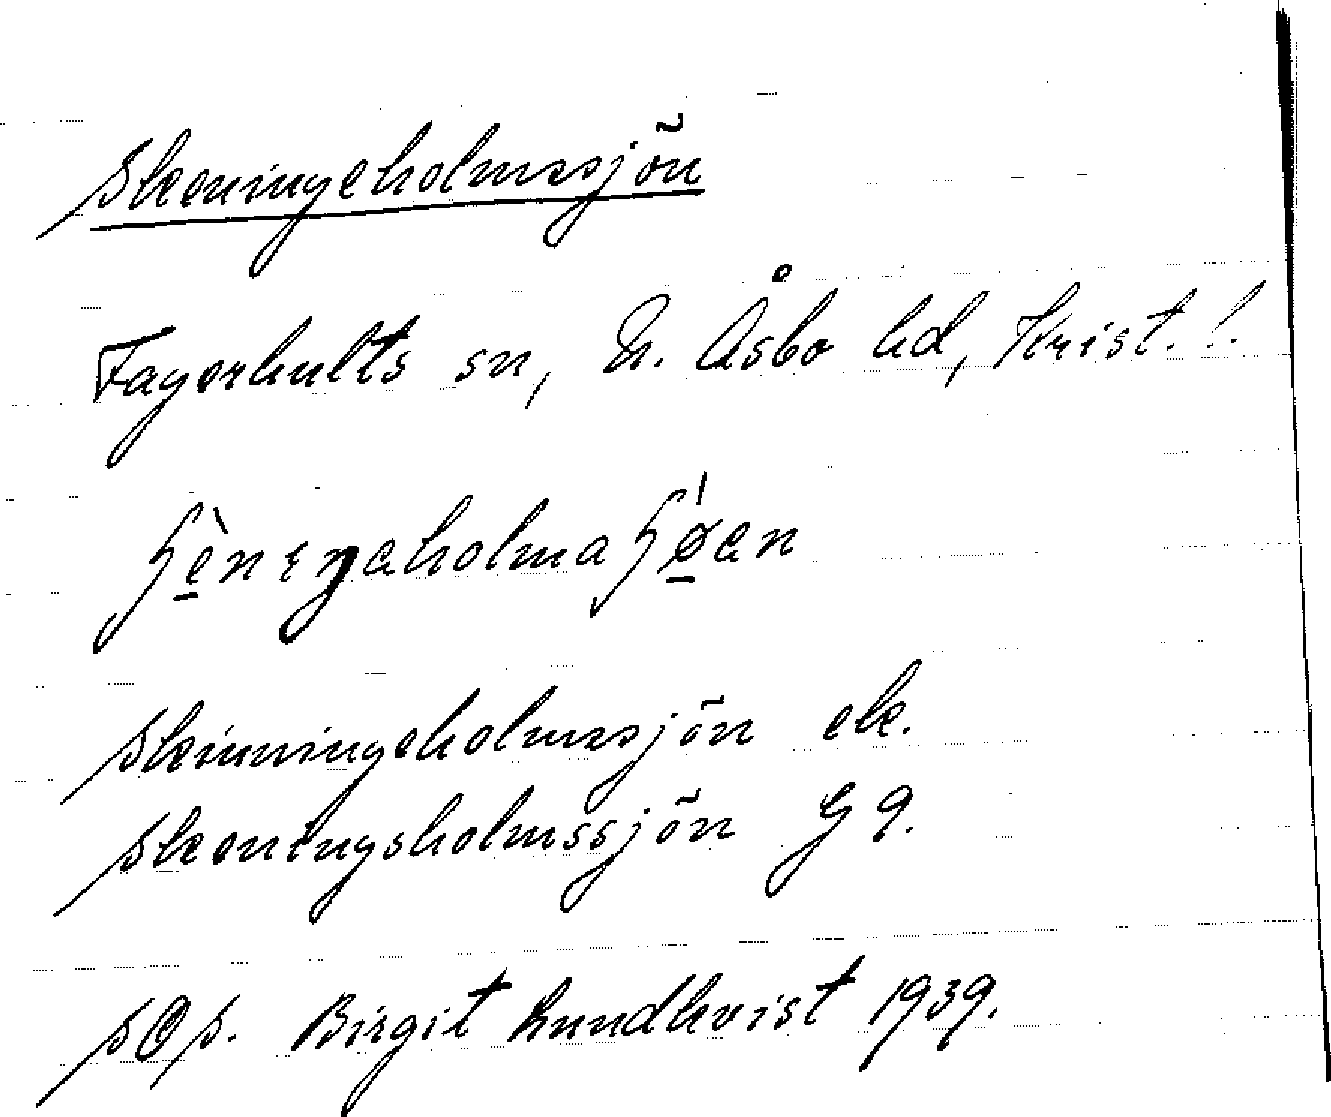 Skeningeholmssjön
Fagerhults sn, N. Åsbo hd, Krist. l.
Skinningeholmssjön ek.
Skeningsholmssjön G 9.
SOS. Birgit Lundkvist 1939.